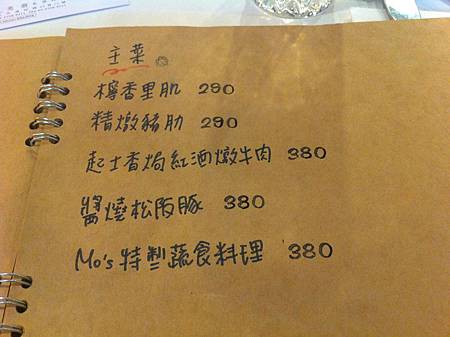 主菜
檸香里肌 290
精燉豬肋 290
起士香焗紅酒燉牛肉 380
醬燒松阪豚 380
Mo's特製蔬食料理 380